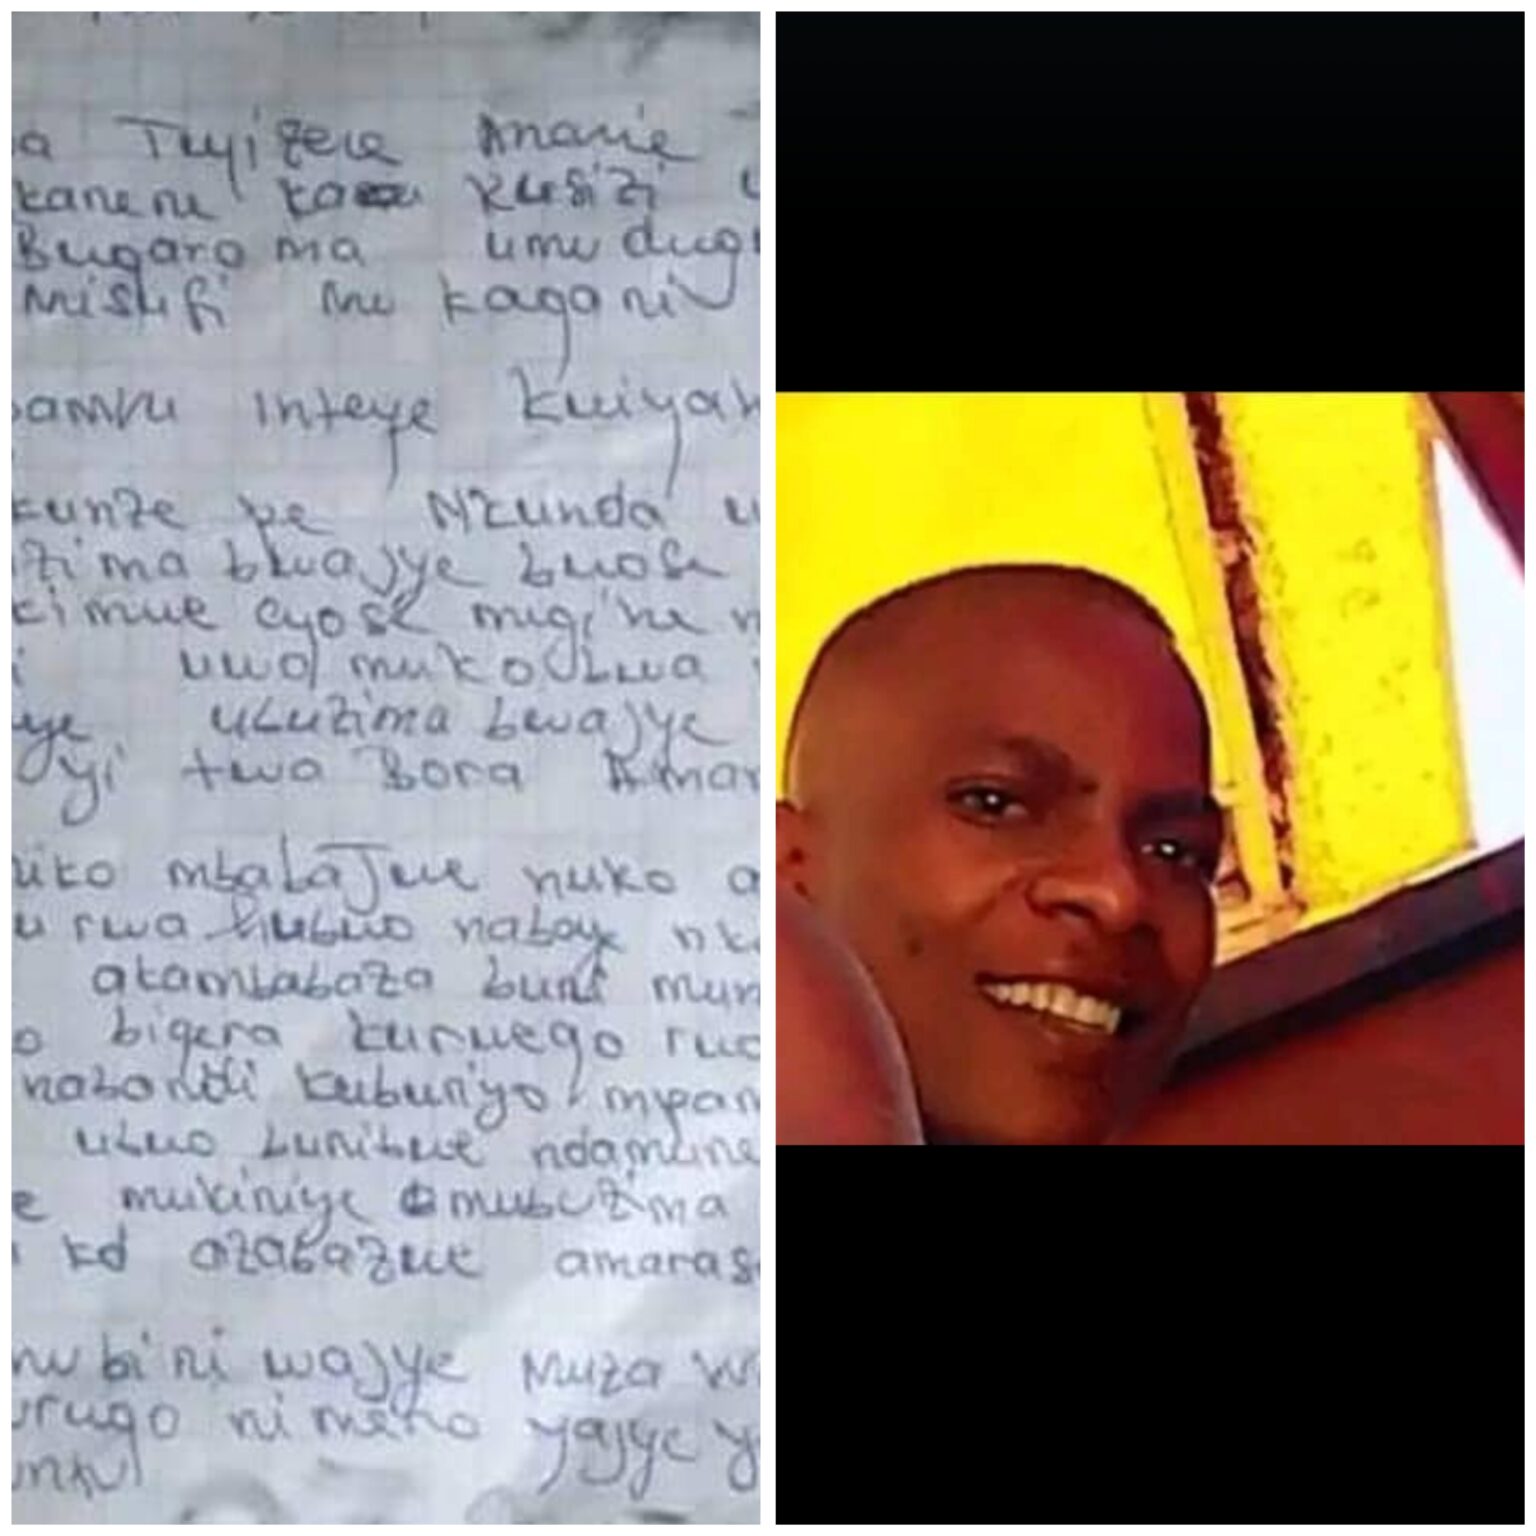 a Tuyizere Ananie
kanene kasu kusizi u
Bugaroma umudugu
Misufi mu kagani
pamvu inteye kwiyah
kunze pe Nkunda u
zima bwajye bwose
kimwe cyose migihe n
i uwo mukobwa
ye ubuzima bwajye
yi twa Bora Amar
uko mbabajwe nuko a
u rwa hubwo nabaye nk
atambabaza buni mun
o bigera kurwego rwo
nabondi kuburiyo mpam
ubwo bunibwe ndamune
e mukiniye mubuzima
kd azabazwe amaraso
mubiri wajye Muza
urugo ni meno yajye y
untu